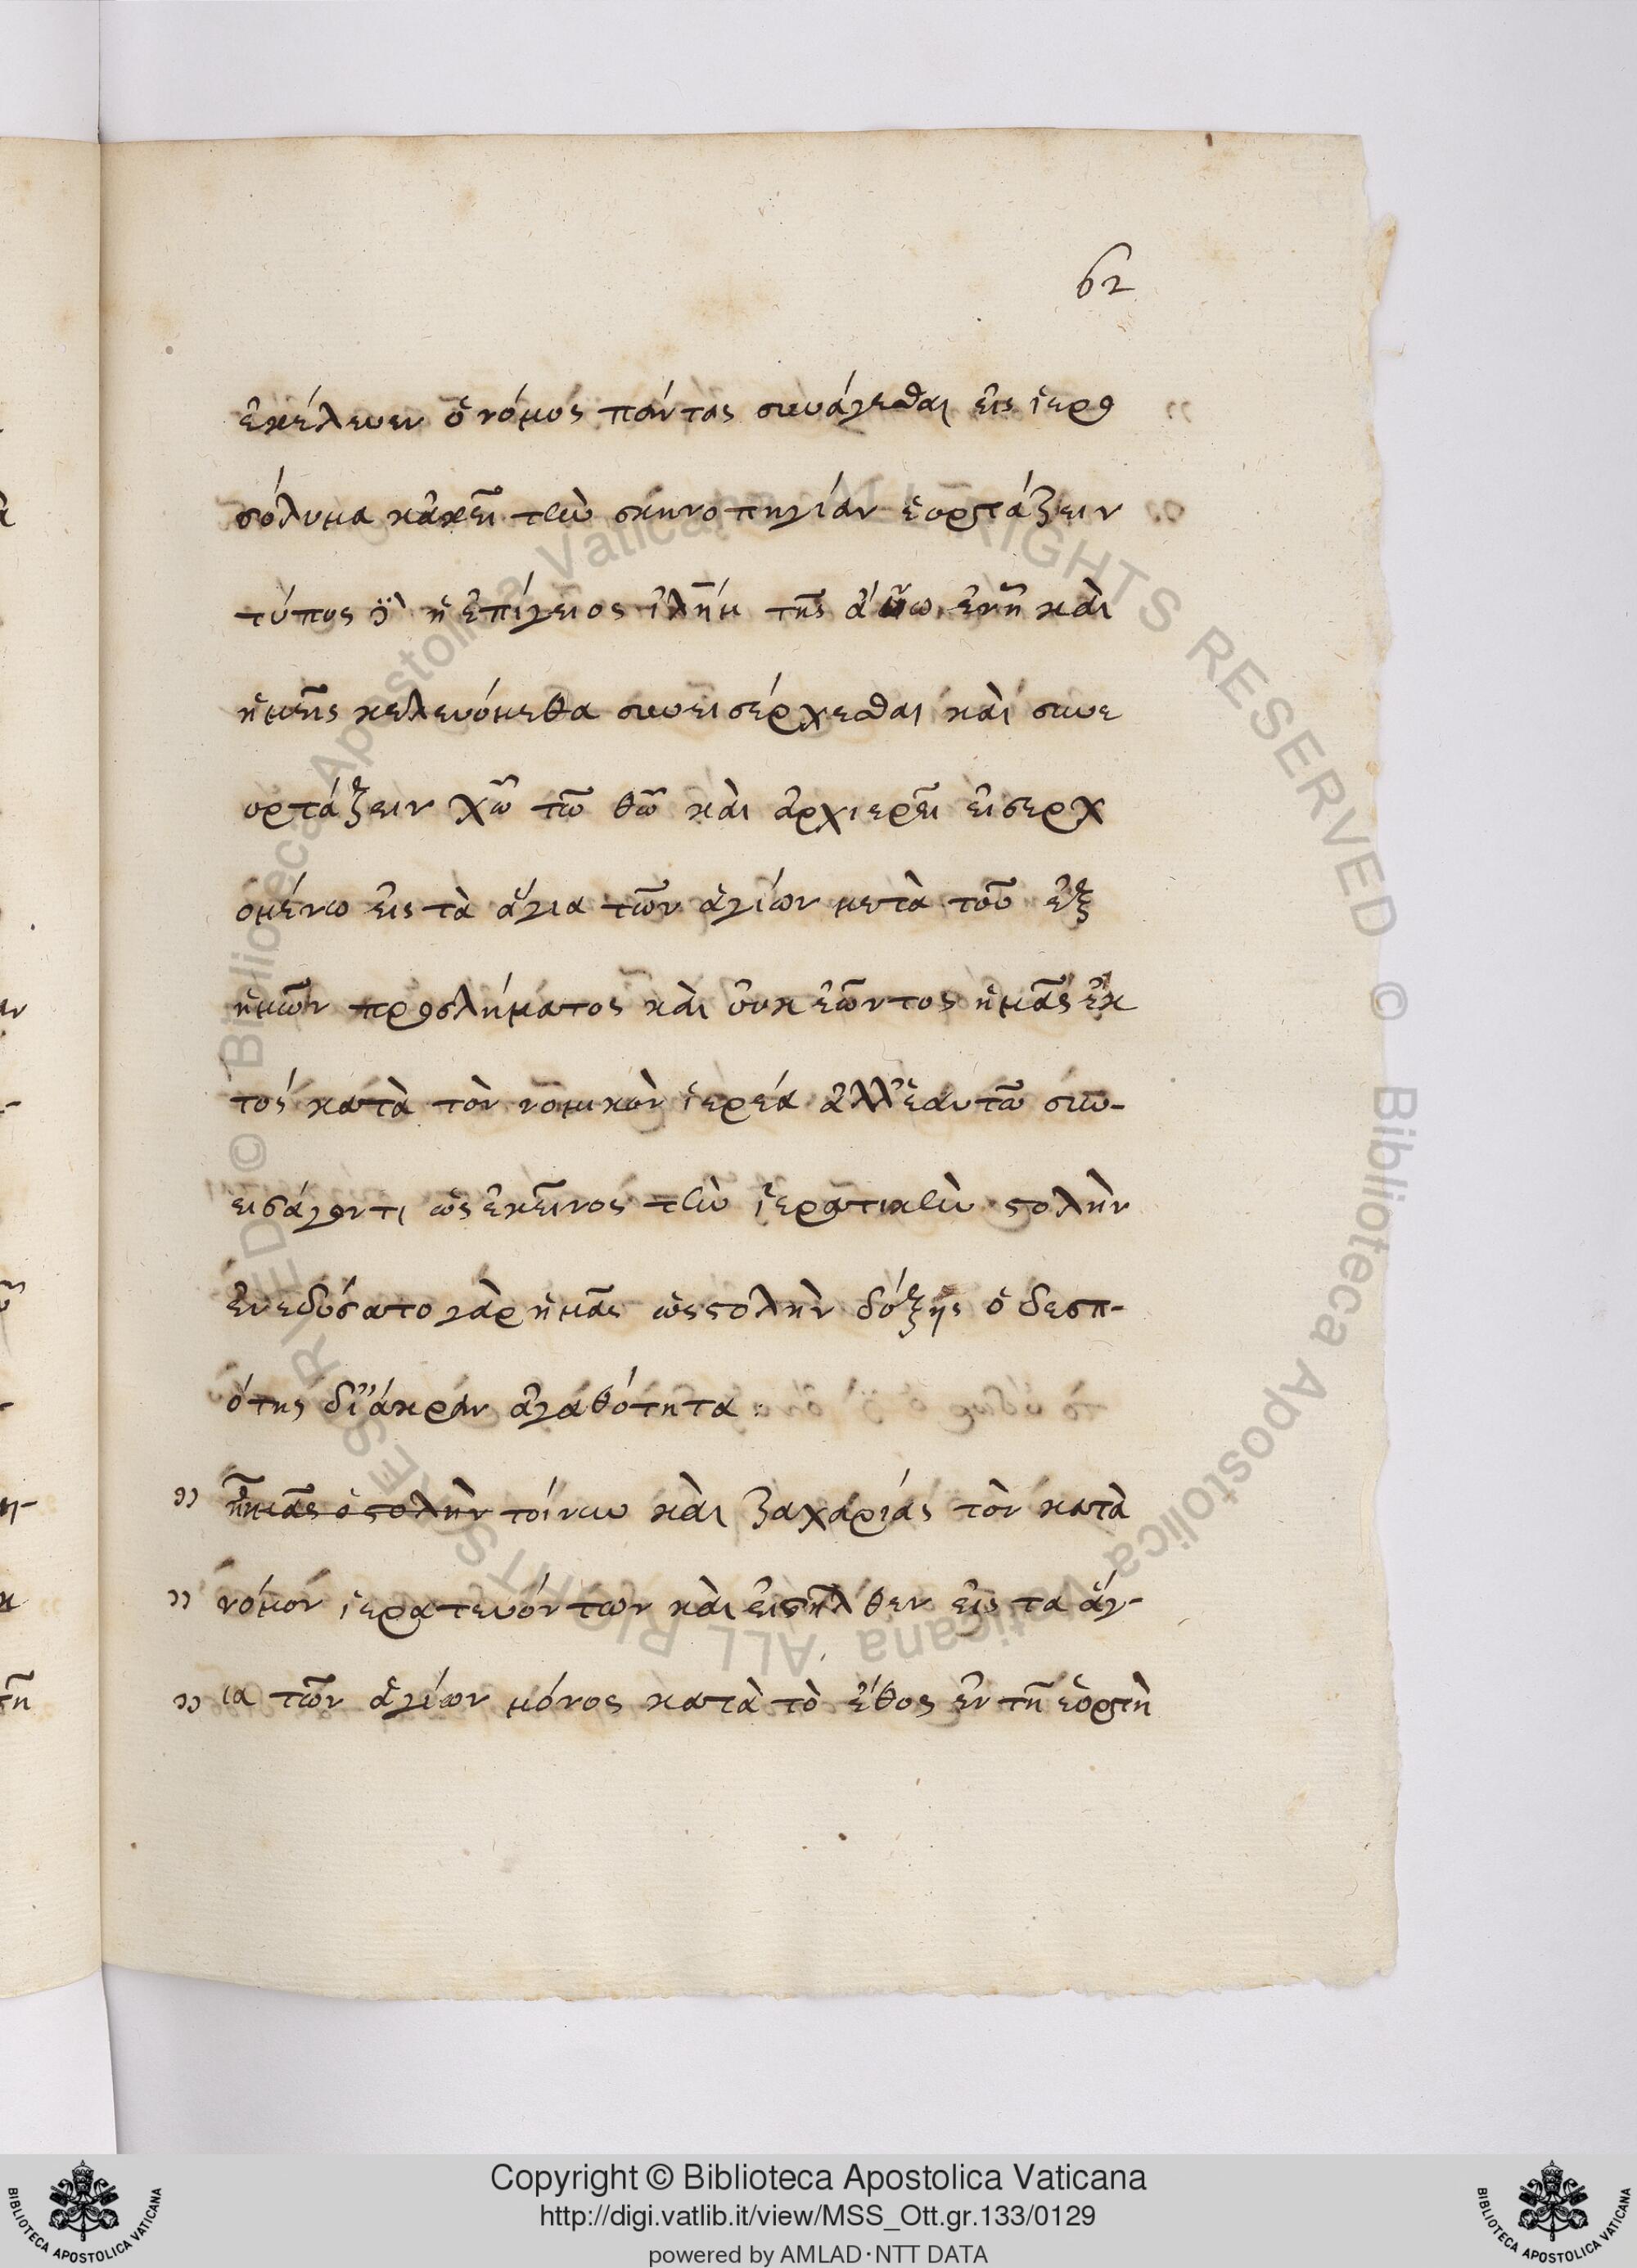 62
ἐκέλευεν ὁ νόμος πάντας συνάγεσθαι εἰς ἱερο
σόλυμα κἀκεῖ τὴν σκηνοπηγίαν ἑορτάζειν
τύπος δ̈ ἡ ἐπίγειος ἰλῆμ τῆς ἄνω ἐκῆ καὶ
ἡμεῖς κελευόμεθα συνεισέρχεσθαι καὶ συνε
ορτάζειν χῶ τῶ θῶ καὶ ἀρχιερεῖ εἰσερχ
ομένω εἰς τὰ ἅγια τῶν ἁγίων μετὰ τοῦ ἐξ
ἡμῶν προσλήματος καὶ οὐκ ἐῶντος ἡμᾶς ἐκ
τός κατὰ τὸν νομικὸν ἱερέα ἀλλ' ἑαυτῶ συν-
εισάγοντι ὡς ἐκεῖνος τὴν ἱερατικὴν στολὴν
ἐνεδύσατο γὰρ ἡμᾶς ὡς στολὴν δόξης ὁ δεσπ-
ότης δι' ἄκραν ἀγαθότητα:
ἡμᾶς ὁ στολὴν τοίνυν καὶ ζαχαρίας τὸν κατὰ
νόμον ἱερατευόντων καὶ εἰσῆλθεν εἰς τα ἅγ-
ια τῶν ἁγίων μόνος κατὰ τὸ ἔθος ἐν τῆ ἑορτὴ
Copyright © Biblioteca Apostolica Vaticana
http://digi.vatlib.it/view/MSS_Ott.gr.133/0129
powered by AMLAD·NTT DATA
BIBLIOTECA APOSTOLICA VATICANA
BIBLIOTECA APOSTOLICA VATICANA
© Biblioteca Apostolica Vaticana ALL RIGHTS RESERVED
© Biblioteca Apostolica Vaticana ALL RIGHTS RESERVED